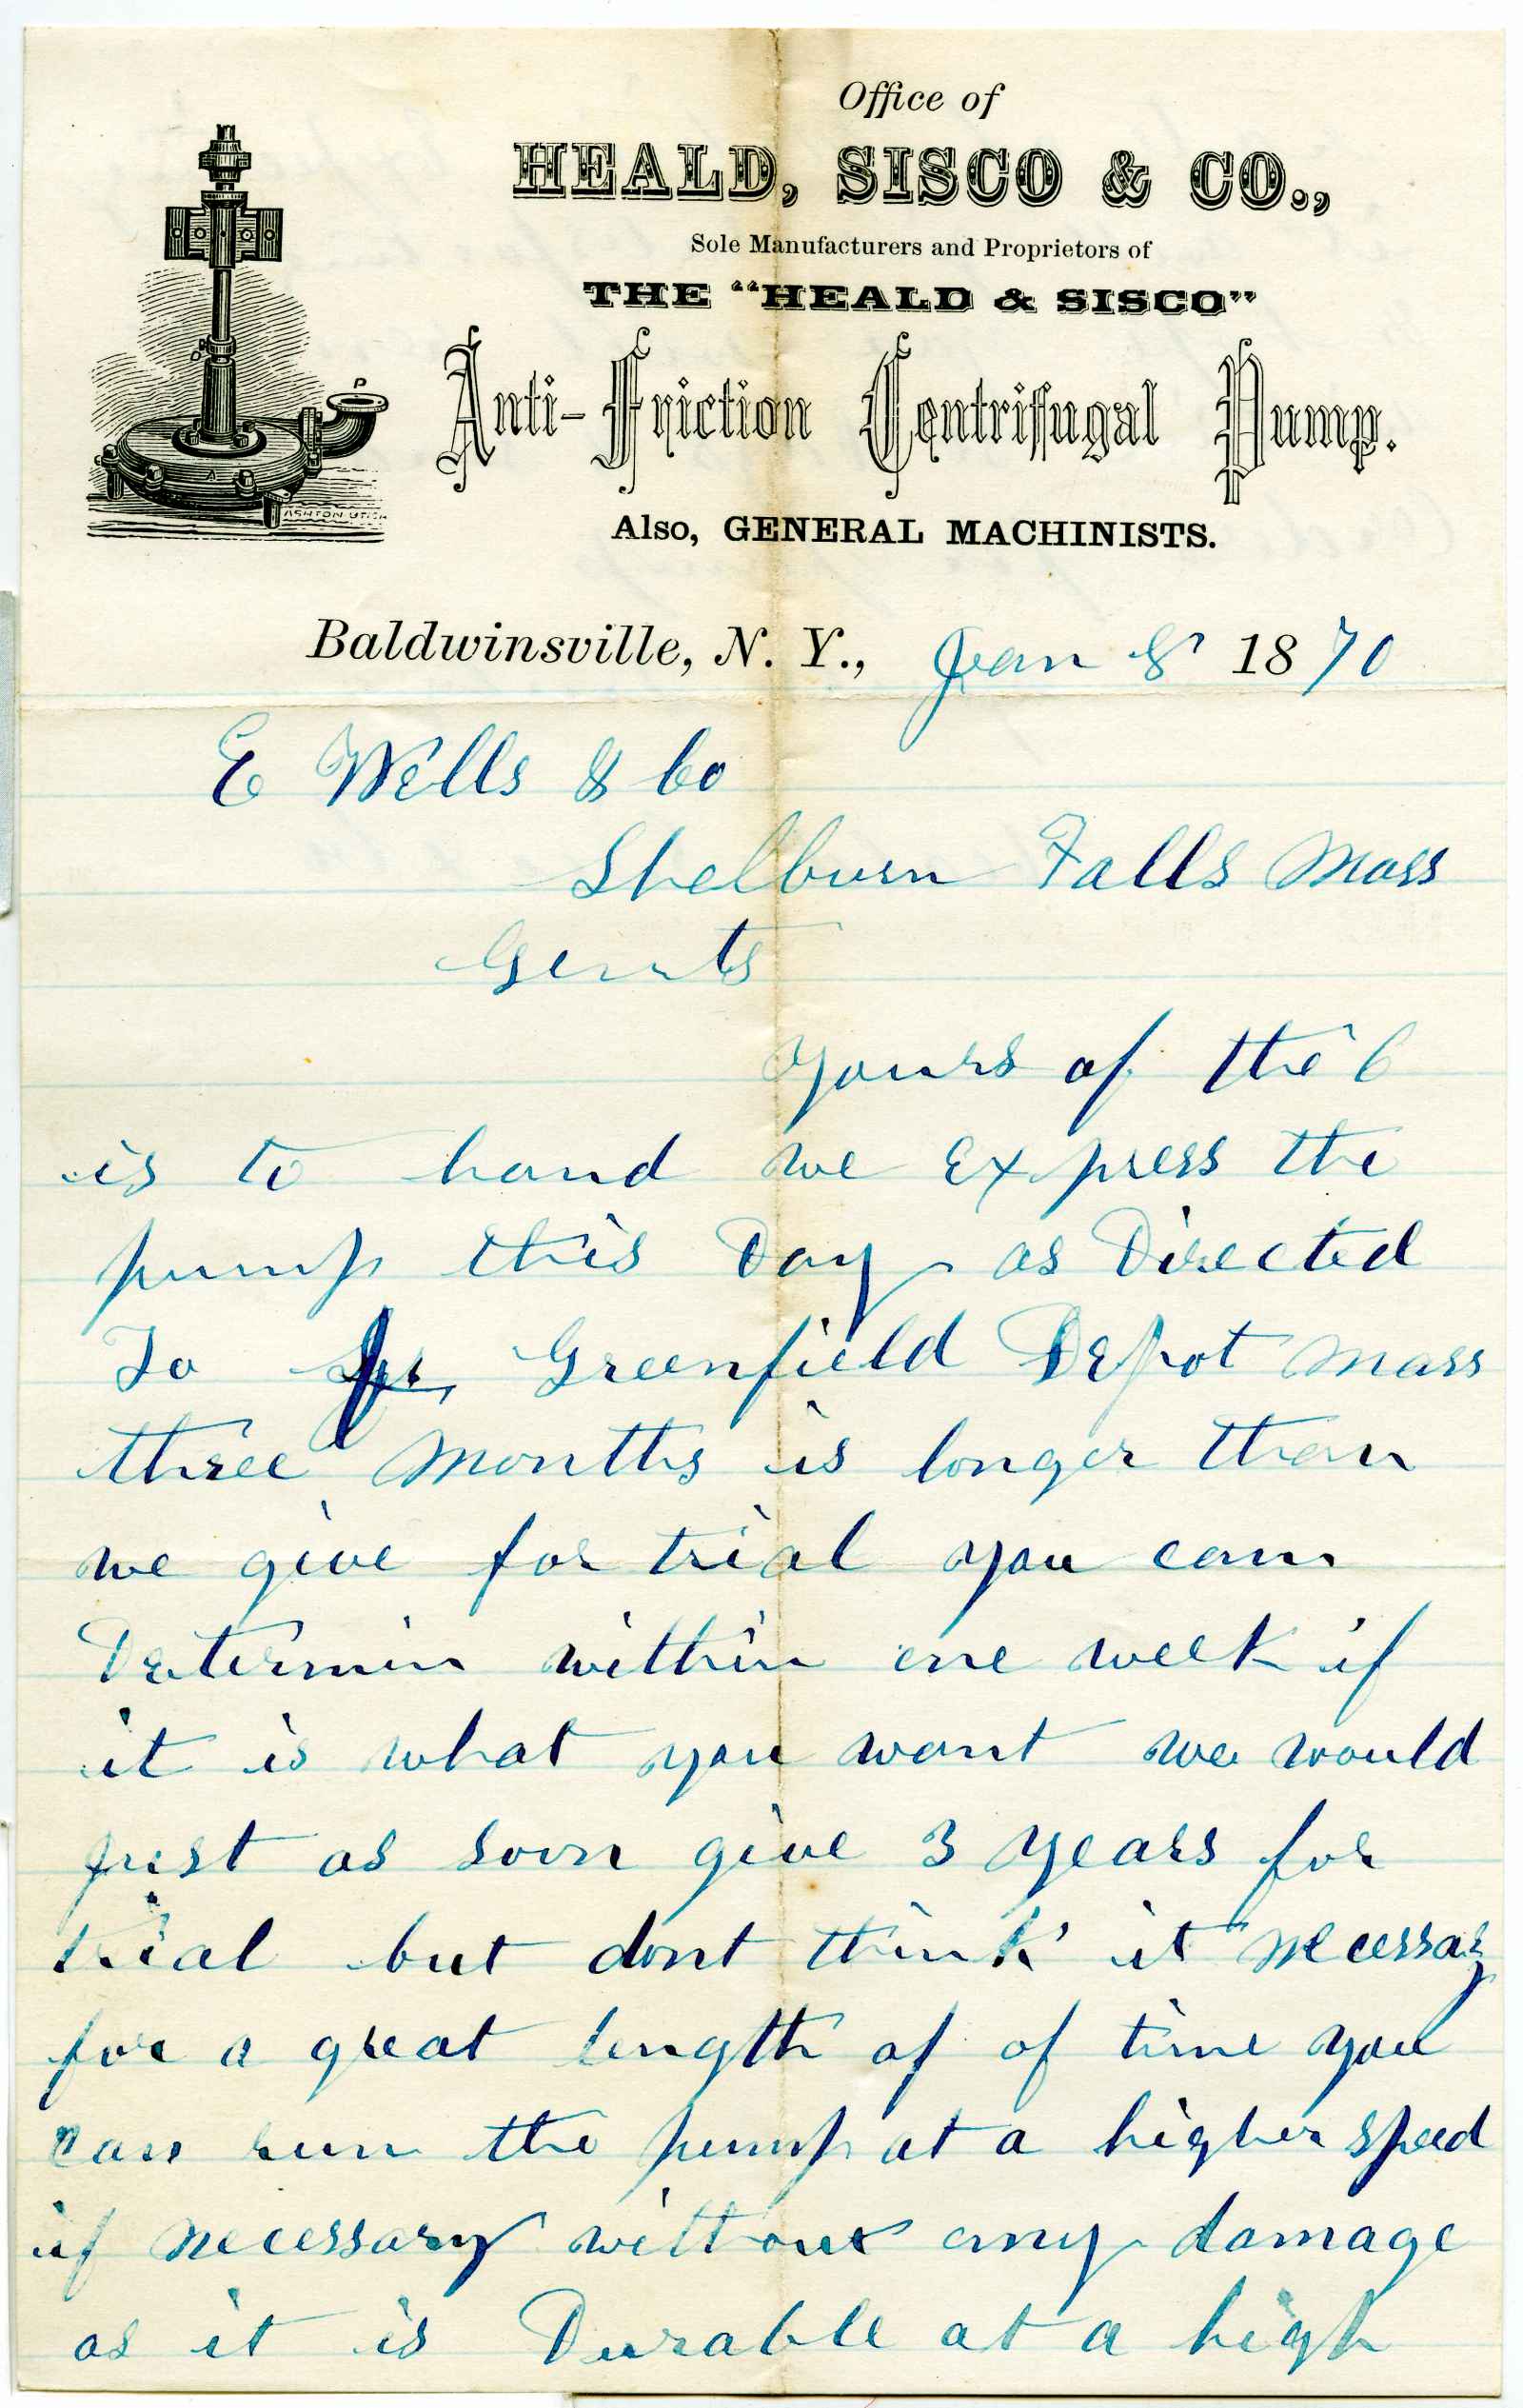 Office of
HEALD, SISCO & CO.,
Sole Manufacturers and Proprietors of
THE "HEALD & SISCO"
Anti-Friction Centrifugal Pump.
Also, GENERAL MACHINISTS.
ASHTON UTICA
A
Baldwinsville, N. Y., Jan 8 1870
E Wells & Co
Shelburn Falls Mass
Gents
Yours of the 6
is to hand we express the
pump this Day as Directed
To Greenfield Depot Mass
three Months is longer than
we give for trial you can
Determin within one week if
it is what you want we would
just as soon give 3 years for
trial but dont think it necessary
for a great length of of time you
can run the pump at a higher speed
if necessary without any damage
as it is Durable at a high